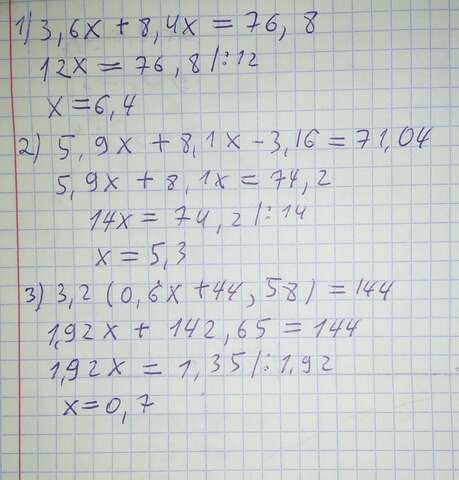 1) 3,6x + 8,4x = 76,8
12x = 76,8 /:12
x = 6,4
2) 5,9x + 8,1x - 3,16 = 71,04
5,9x + 8,1x = 74,2
14x = 74,2 /:14
x = 5,3
3) 3,2 (0,6x + 44,58) = 144
1,92x + 142,65 = 144
1,92x = 1,35 /:1,92
x = 0,7